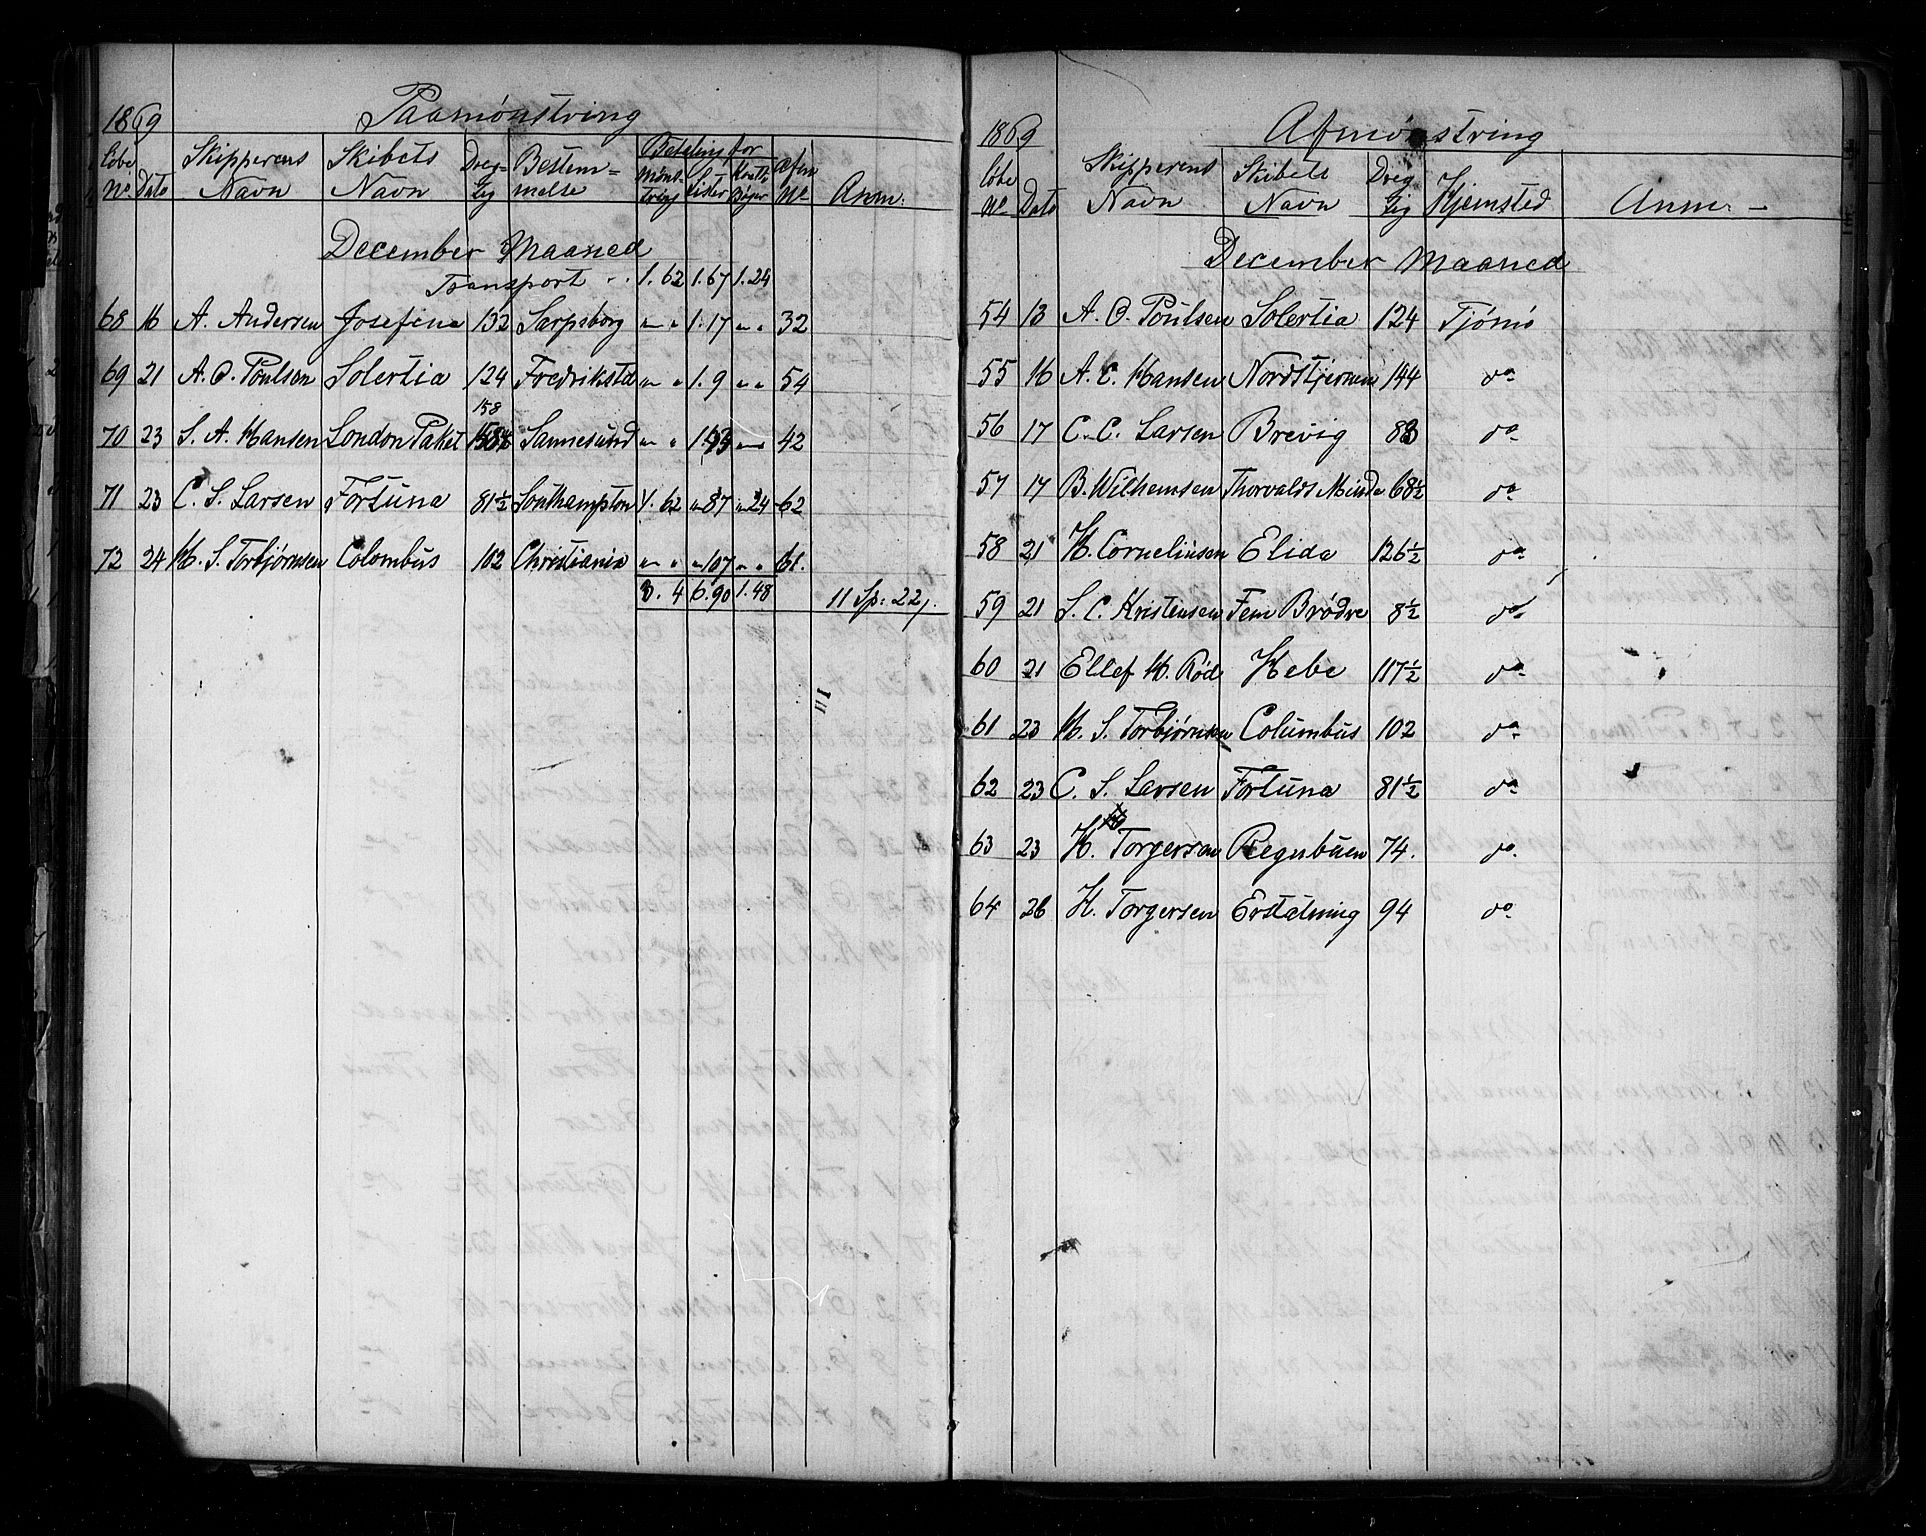 1869 Paamönstring
Löbe No. Dato Skipperens Navn Skibets Navn Dræg-tig Bestem-melse Betaling for Möns-tring Lister Afm No Anm.
December Maaned
Transport 1.62 1.67 1.24
68 16 A. Andersen Josefine 132 Sarpsborg " " 1.17 " " 32
69 21 A. O. Poulsen Solertia 124 Fredrikstad " " 1.9 " " 54
158
70 23 S. A. Hansen London Paket Sannesund " " 42
71 23 C. S. Larsen Fortuna 81½ Southampton 1.62 " 87 " 24 62
72 24 H. S. Torbjörnsen Colombus 102 Christiania " " " 107 " " 61.
3.4 6.90 1.48 11 Sp: 22
1869 Afmönstring
Löbe No Dato Skipperens Navn Skibets Navn Dræg tig Hjemsted Anm.
December Maaned
54 13 A. O. Poulsen Solertia 124 Tjömö
55 16 A. C. Hansen Nordstjernen 144 do
56 17 C. C. Larsen Brevig 88 do
57 17 B. Wilhemsen Thorvalds Minde 68½ do
58 21 H. Corneliusen Elida 126½ do
59 21 S. C. Kristensen Fem Brödre 8½ do
60 21 Ellef H. Röd Hebe 117½ do
61 23 H. S. Torbjörnsen Columbus 102 do
62 23 C. S. Larsen Fortuna 81½ do
63 23 H. Torgersen Regnbuen 74. do
64 26 H. Torgersen Erstatning 94 do